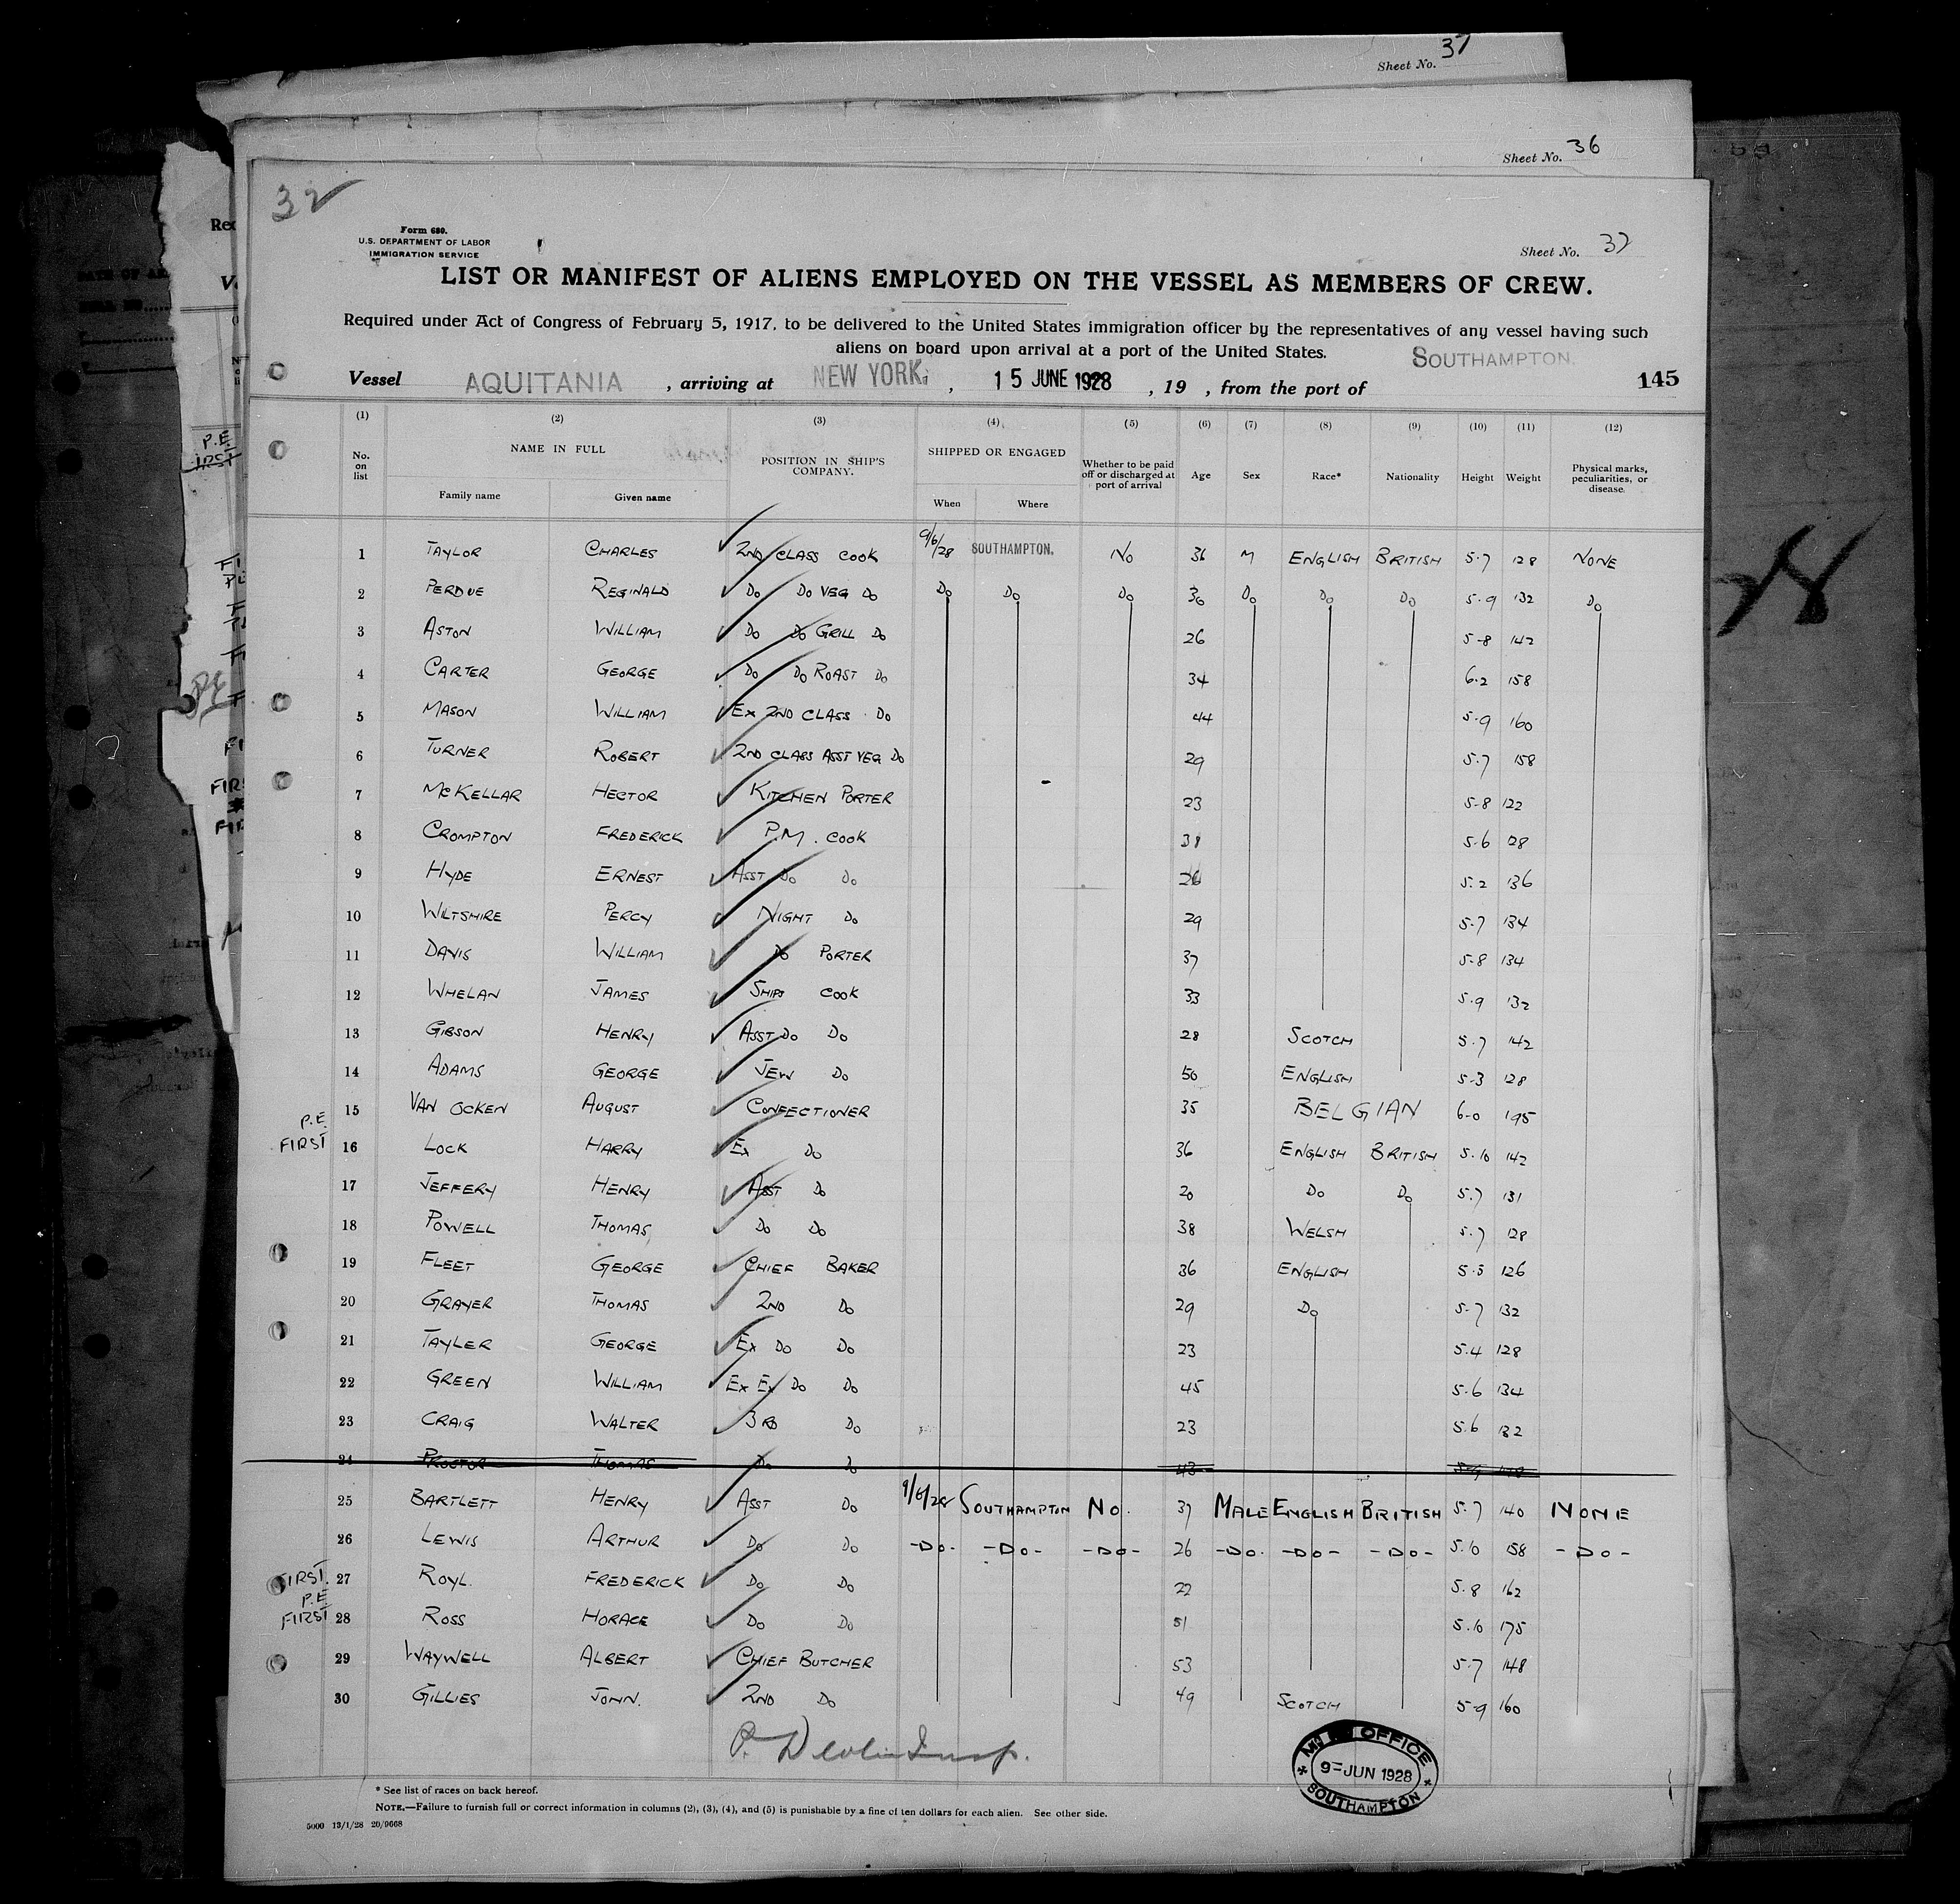 Sheet No. 37
Sheet No. 36
32
Form 680.
U.S. DEPARTMENT OF LABOR
IMMIGRATION SERVICE
Sheet No. 32
LIST OR MANIFEST OF ALIENS EMPLOYED ON THE VESSEL AS MEMBERS OF CREW.
Required under Act of Congress of February 5, 1917, to be delivered to the United States immigration officer by the representatives of any vessel having such
aliens on board upon arrival at a port of the United States.
Vessel AQUITANIA , arriving at NEW YORK , 15 JUNE 1928 , 19 , from the port of SOUTHAMPTON. 145
(1) (2) (3) (4) (5) (6) (7) (8) (9) (10) (11) (12)
No. on list NAME IN FULL Family name Given name POSITION IN SHIP'S COMPANY. SHIPPED OR ENGAGED When Where Whether to be paid off or discharged at port of arrival Age Sex Race* Nationality Height Weight Physical marks, peculiarities, or disease.
1 TAYLOR CHARLES 2ND CLASS COOK 9/6/28 SOUTHAMPTON. NO 36 M ENGLISH BRITISH 5.7 128 NONE
2 PERDUE REGINALD DO DO VEG DO DO DO DO 36 DO DO DO 5.9 132 DO
3 ASTON WILLIAM DO DO GRILL DO 26 5-8 142
4 CARTER GEORGE DO DO ROAST DO 34 6.2 158
5 MASON WILLIAM EX 2ND CLASS DO 44 5.9 160
6 TURNER ROBERT 2ND CLASS ASST VEG DO 29 5.7 158
7 McKELLAR HECTOR KITCHEN PORTER 23 5-8 122
8 CROMPTON FREDERICK P.M. COOK 38 5.6 128
9 HYDE ERNEST ASST DO DO 26 5.2 136
10 WILTSHIRE PERCY NIGHT DO 29 5.7 134
11 DAVIS WILLIAM DO PORTER 37 5-8 134
12 WHELAN JAMES SHIPS COOK 33 5.9 132
13 GIBSON HENRY ASST DO DO 28 SCOTCH 5.7 142
14 ADAMS GEORGE JEW DO 50 ENGLISH 5.3 128
15 VAN OCKEN AUGUST CONFECTIONER 35 BELGIAN 6-0 195
P.E.
FIRST 16 LOCK HARRY EX DO 36 ENGLISH BRITISH 5.10 142
17 JEFFERY HENRY ASST DO 20 DO DO 5.7 131
18 POWELL THOMAS DO DO 38 WELSH 5.7 128
19 FLEET GEORGE CHIEF BAKER 36 ENGLISH 5.5 126
20 GRAYER THOMAS 2ND DO 29 DO 5.7 132
21 TAYLER GEORGE EX DO DO 23 5.4 128
22 GREEN WILLIAM EX EX DO DO 45 5.6 134
23 CRAIG WALTER 3RD DO 23 5.6 132
24 PROCTOR THOMAS DO DO 43
25 BARTLETT HENRY ASST DO 9/6/28 SOUTHAMPTON NO. 37 MALE ENGLISH BRITISH 5.7 140 NONE
26 LEWIS ARTHUR DO DO -DO- -DO- -DO- 26 -DO- -DO- -DO- 5.10 158 -DO-
FIRST. 27 ROYL. FREDERICK DO DO 22 5.8 162
P.E.
FIRST 28 ROSS HORACE DO DO 51 5.10 175
29 WAYWELL ALBERT CHIEF BUTCHER 53 5.7 148
30 GILLIES JOHN. 2ND DO 49 SCOTCH 5-9 160
OFFICE
9 - JUN 1928
SOUTHAMPTON
* See list of races on back hereof.
NOTE.—Failure to furnish full or correct information in columns (2), (3), (4), and (5) is punishable by a fine of ten dollars for each alien. See other side.
5000 13/1/28 20/9668